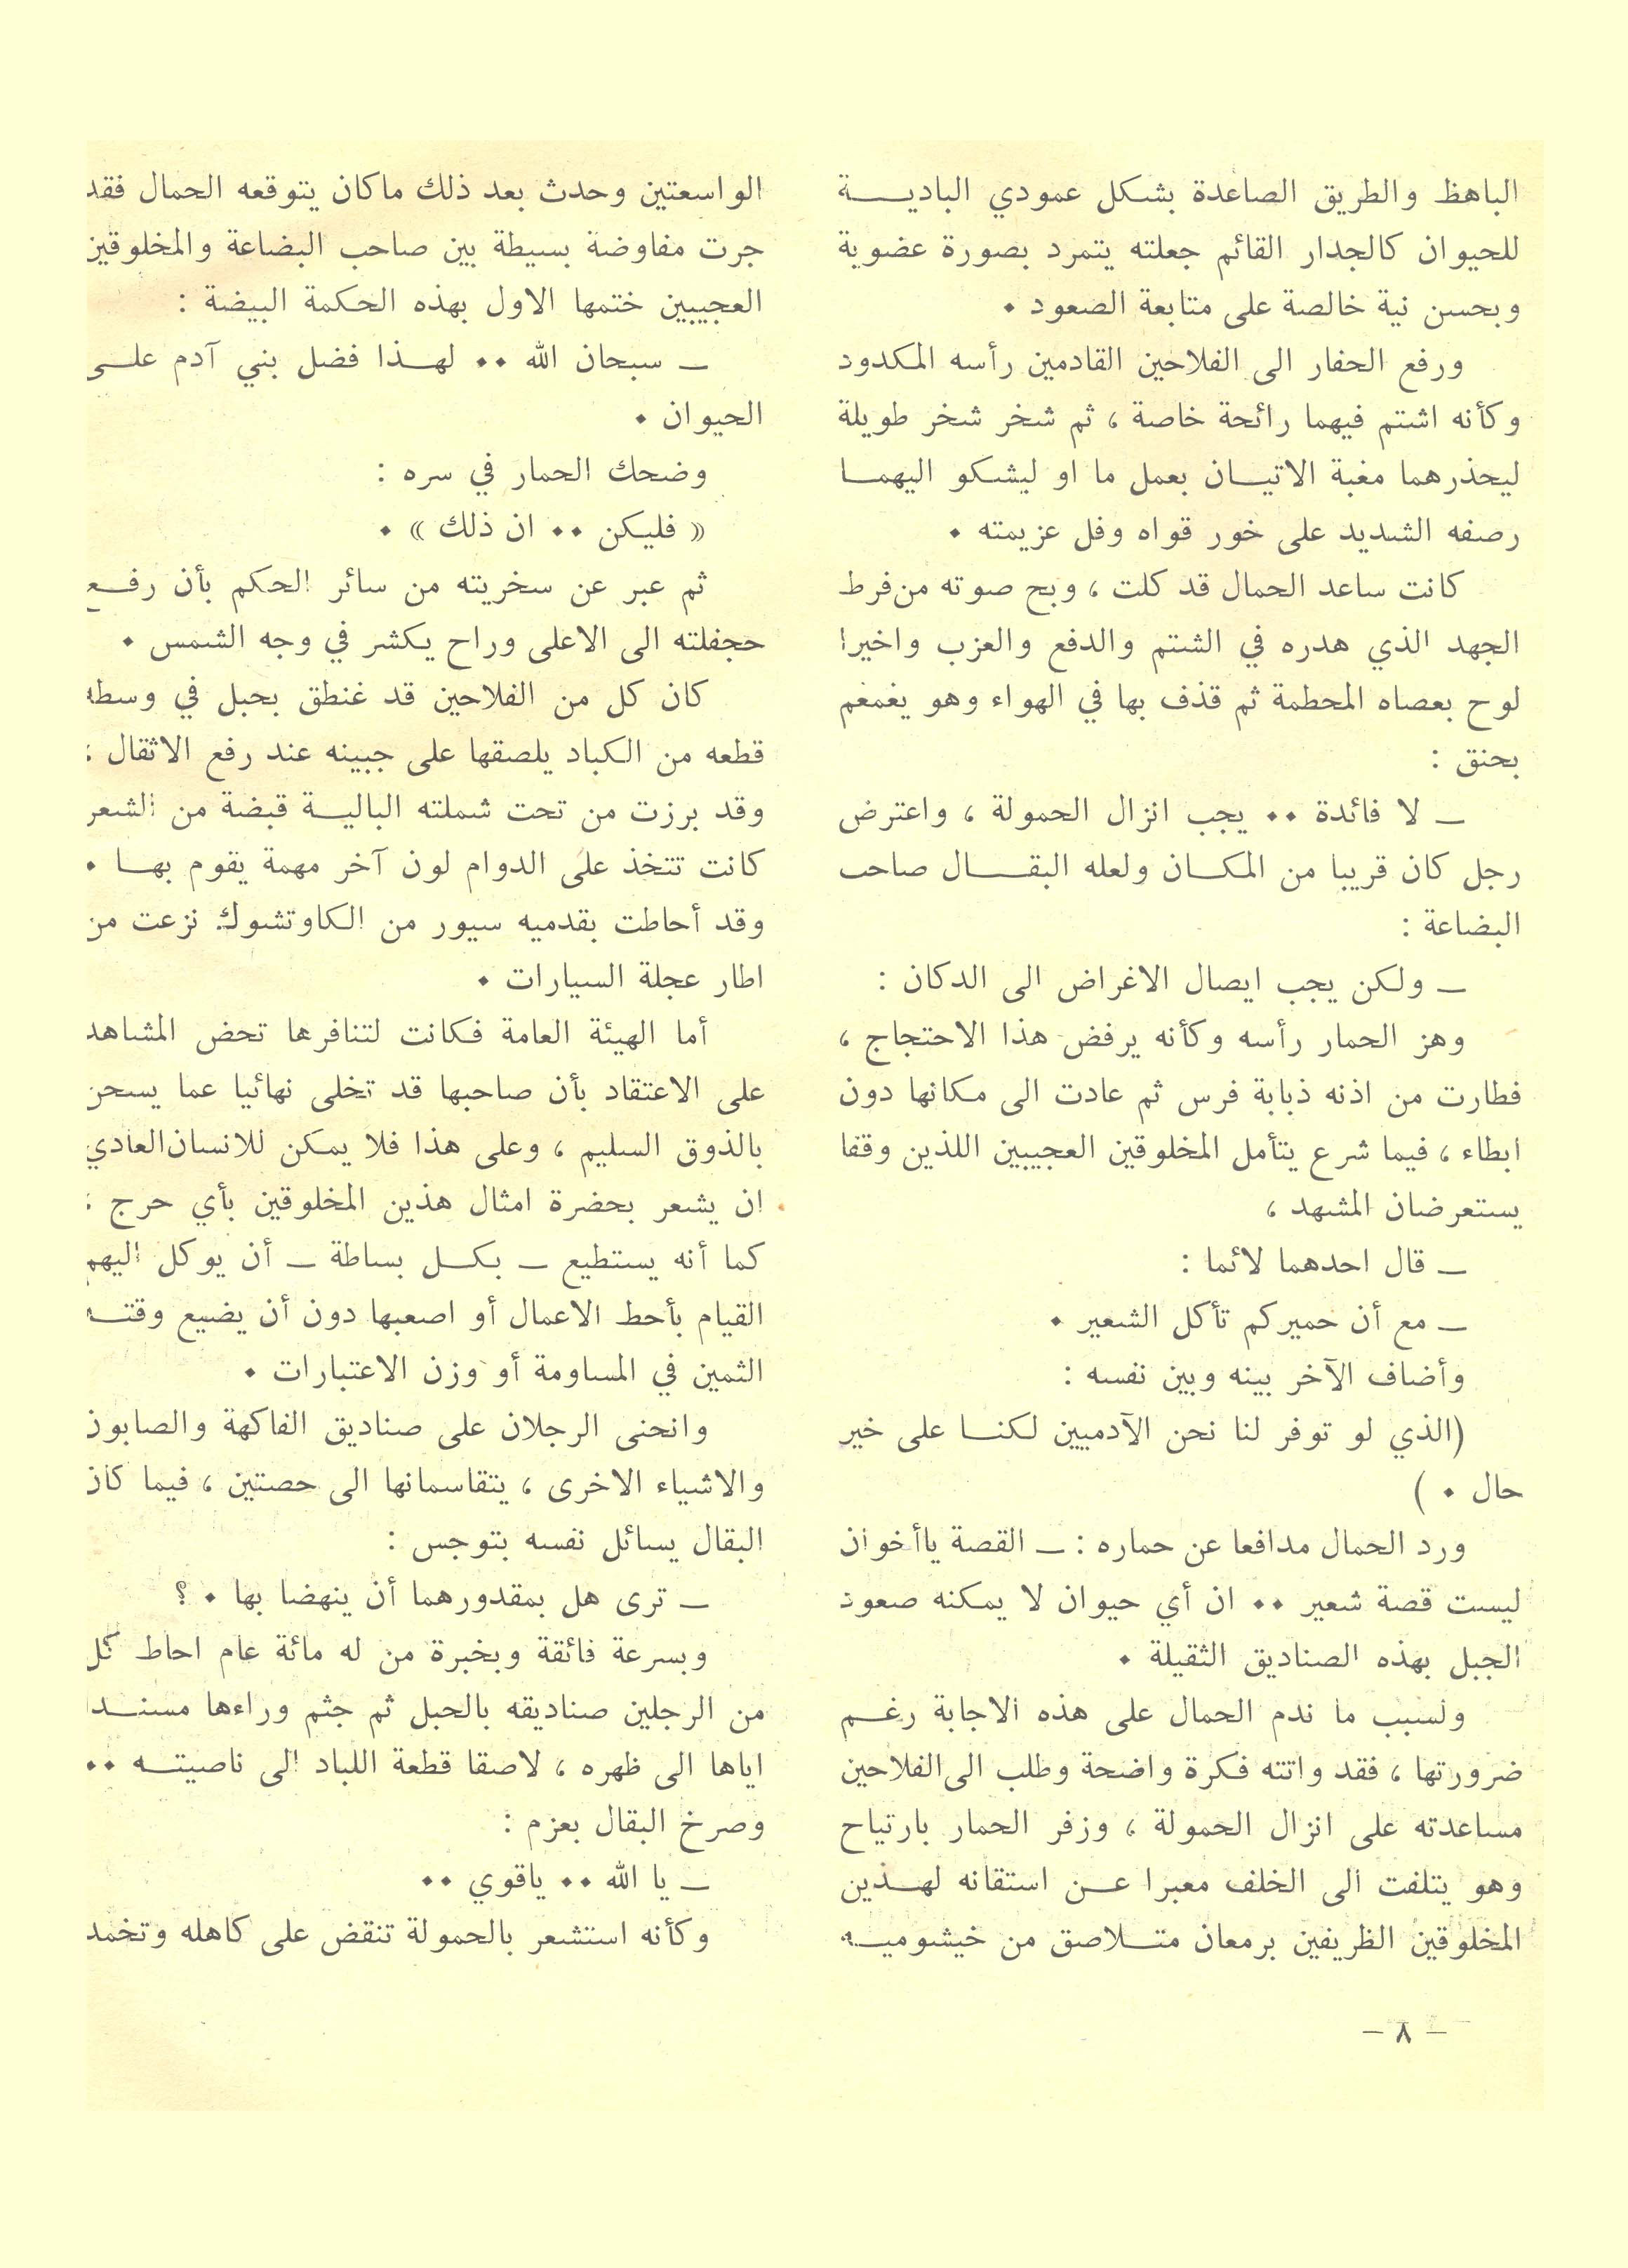 الباهظ والطريق الصاعدة بشكل عمودي البادية
للحيوان كالجدار القائم جعلته يتمرد بصورة عضوية
وبحسن نية خالصة على متابعة الصعود ٠
ورفع الحفار الى الفلاحين القادمين رأسه المكدود
وكأنه اشتم فيهما رائحة خاصة ، ثم شخر شخر طويلة
ليحذرهما مغبة الاتيان بعمل ما او ليشكو اليهما
رصفه الشديد على خور قواه وفل عزيمته ٠
كانت ساعد الحمال قد كلت ، وبح صوته من فرط
الجهد الذي هدره في الشتم والدفع والعزب واخيرا
لوح بعصاه المحطمة ثم قذف بها في الهواء وهو يغمغم
بحنق :
ـ لا فائدة ٠٠ يجب انزال الحمولة ، واعترض
رجل كان قريبا من المكان ولعله البقال صاحب
البضاعة :
ـ ولكن يجب ايصال الاغراض الى الدكان :
وهز الحمار رأسه وكأنه يرفض هذا الاحتجاج ،
فطارت من اذنه ذبابة فرس ثم عادت الى مكانها دون
ابطاء ، فيما شرع يتأمل المخلوقين العجيبين اللذين وقفا
يستعرضان المشهد ،
ـ قال احدهما لائما :
ـ مع أن حميركم تأكل الشعير ٠
وأضاف الآخر بينه وبين نفسه :
(الذي لو توفر لنا نحن الآدميين لكنا على خير
حال ٠ )
ورد الحمال مدافعا عن حماره : ـ القصة ياأخوان
ليست قصة شعير ٠٠ ان أي حيوان لا يمكنه صعود
الجبل بهذه الصناديق الثقيلة ٠
ولسبب ما ندم الحمال على هذه الاجابة رغم
ضرورتها ، فقد واتته فكرة واضحة وطلب الى الفلاحين
مساعدته على انزال الحمولة ، وزفر الحمار بارتياح
وهو يتلفت الى الخلف معبرا عن استقانه لهذين
المخلوقين الظريفين برمعان متلاصق من خيشوميه
الواسعتين وحدث بعد ذلك ماكان يتوقعه الحمال فقد
جرت مفاوضة بسيطة بين صاحب البضاعة والمخلوقين
العجيبين ختمها الاول بهذه الحكمة البيضة :
ـ سبحان الله ٠٠ لهذا فضل بني آدم على
الحيوان ٠
وضحك الحمار في سره :
« فليكن ٠٠ ان ذلك » ٠
ثم عبر عن سخريته من سائر الحكم بأن رفع
حجفلته الى الاعلى وراح يكشر في وجه الشمس ٠
كان كل من الفلاحين قد غنطق بحبل في وسطه
قطعه من الكباد يلصقها على جبينه عند رفع الاثقال ،
وقد برزت من تحت شملته البالية قبضة من الشعر
كانت تتخذ على الدوام لون آخر مهمة يقوم بها ٠
وقد أحاطت بقدميه سيور من الكاوتشوك نزعت من
اطار عجلة السيارات ٠
أما الهيئة العامة فكانت لتنافرها تحض المشاهد
على الاعتقاد بأن صاحبها قد تخلى نهائيا عما يسحن
بالذوق السليم ، وعلى هذا فلا يمكن للانسان العادي
ان يشعر بحضرة امثال هذين المخلوقين بأي حرج ،
كما أنه يستطيع ـ بكل بساطة ـ أن يوكل اليهم
القيام بأحط الاعمال أو اصعبها دون أن يضيع وقته
الثمين في المساومة أو وزن الاعتبارات ٠
وانحنى الرجلان على صناديق الفاكهة والصابون
والاشياء الاخرى ، يتقاسمانها الى حصتين ، فيما كان
البقال يسائل نفسه بتوجس :
ـ ترى هل بمقدورهما أن ينهضا بها ٠ ؟
وبسرعة فائقة وبخبرة من له مائة عام احاط كل
من الرجلين صناديقه بالحبل ثم جثم وراءها مسندا
اياها الى ظهره ، لاصقا قطعة اللباد الى ناصيته ٠٠
وصرخ البقال بعزم :
ـ يا الله ٠٠ ياقوي ٠٠
وكأنه استشعر بالحمولة تنقض على كاهله وتخمد
ـ ٨ ـ